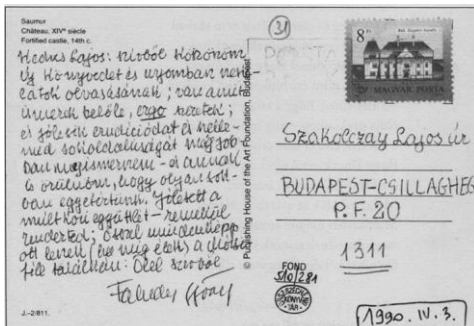 Saumur
Château, XIVᵉ siècle
Fortified castle, 14th c.
Kedves Lajos: szívből köszönöm
új könyvedet és nyomban neki-
látok olvasásának; van amit
ismerek belőle, ergo
és jólesik erudíciódat és
sokoldalúságát még job-
ban megismernem - s annak
is örülnöm, hogy olyan sok-
ban egyetértünk.
múltkori együttlét - remekül
rendezted; ősszel mindenképp
ott leszek (ha még élek) a
féle találkán. Ölel szívből
Faludy György
J.-2/811.
© Publishing House of the Art Foundation, Budapest
31
8 Ft
MAGYAR POSTA
Szakolczay Lajos úr
BUDAPEST-CSILLAGHEGY
P.F. 20
1311
FOND
510/281
1990. IV. 3.